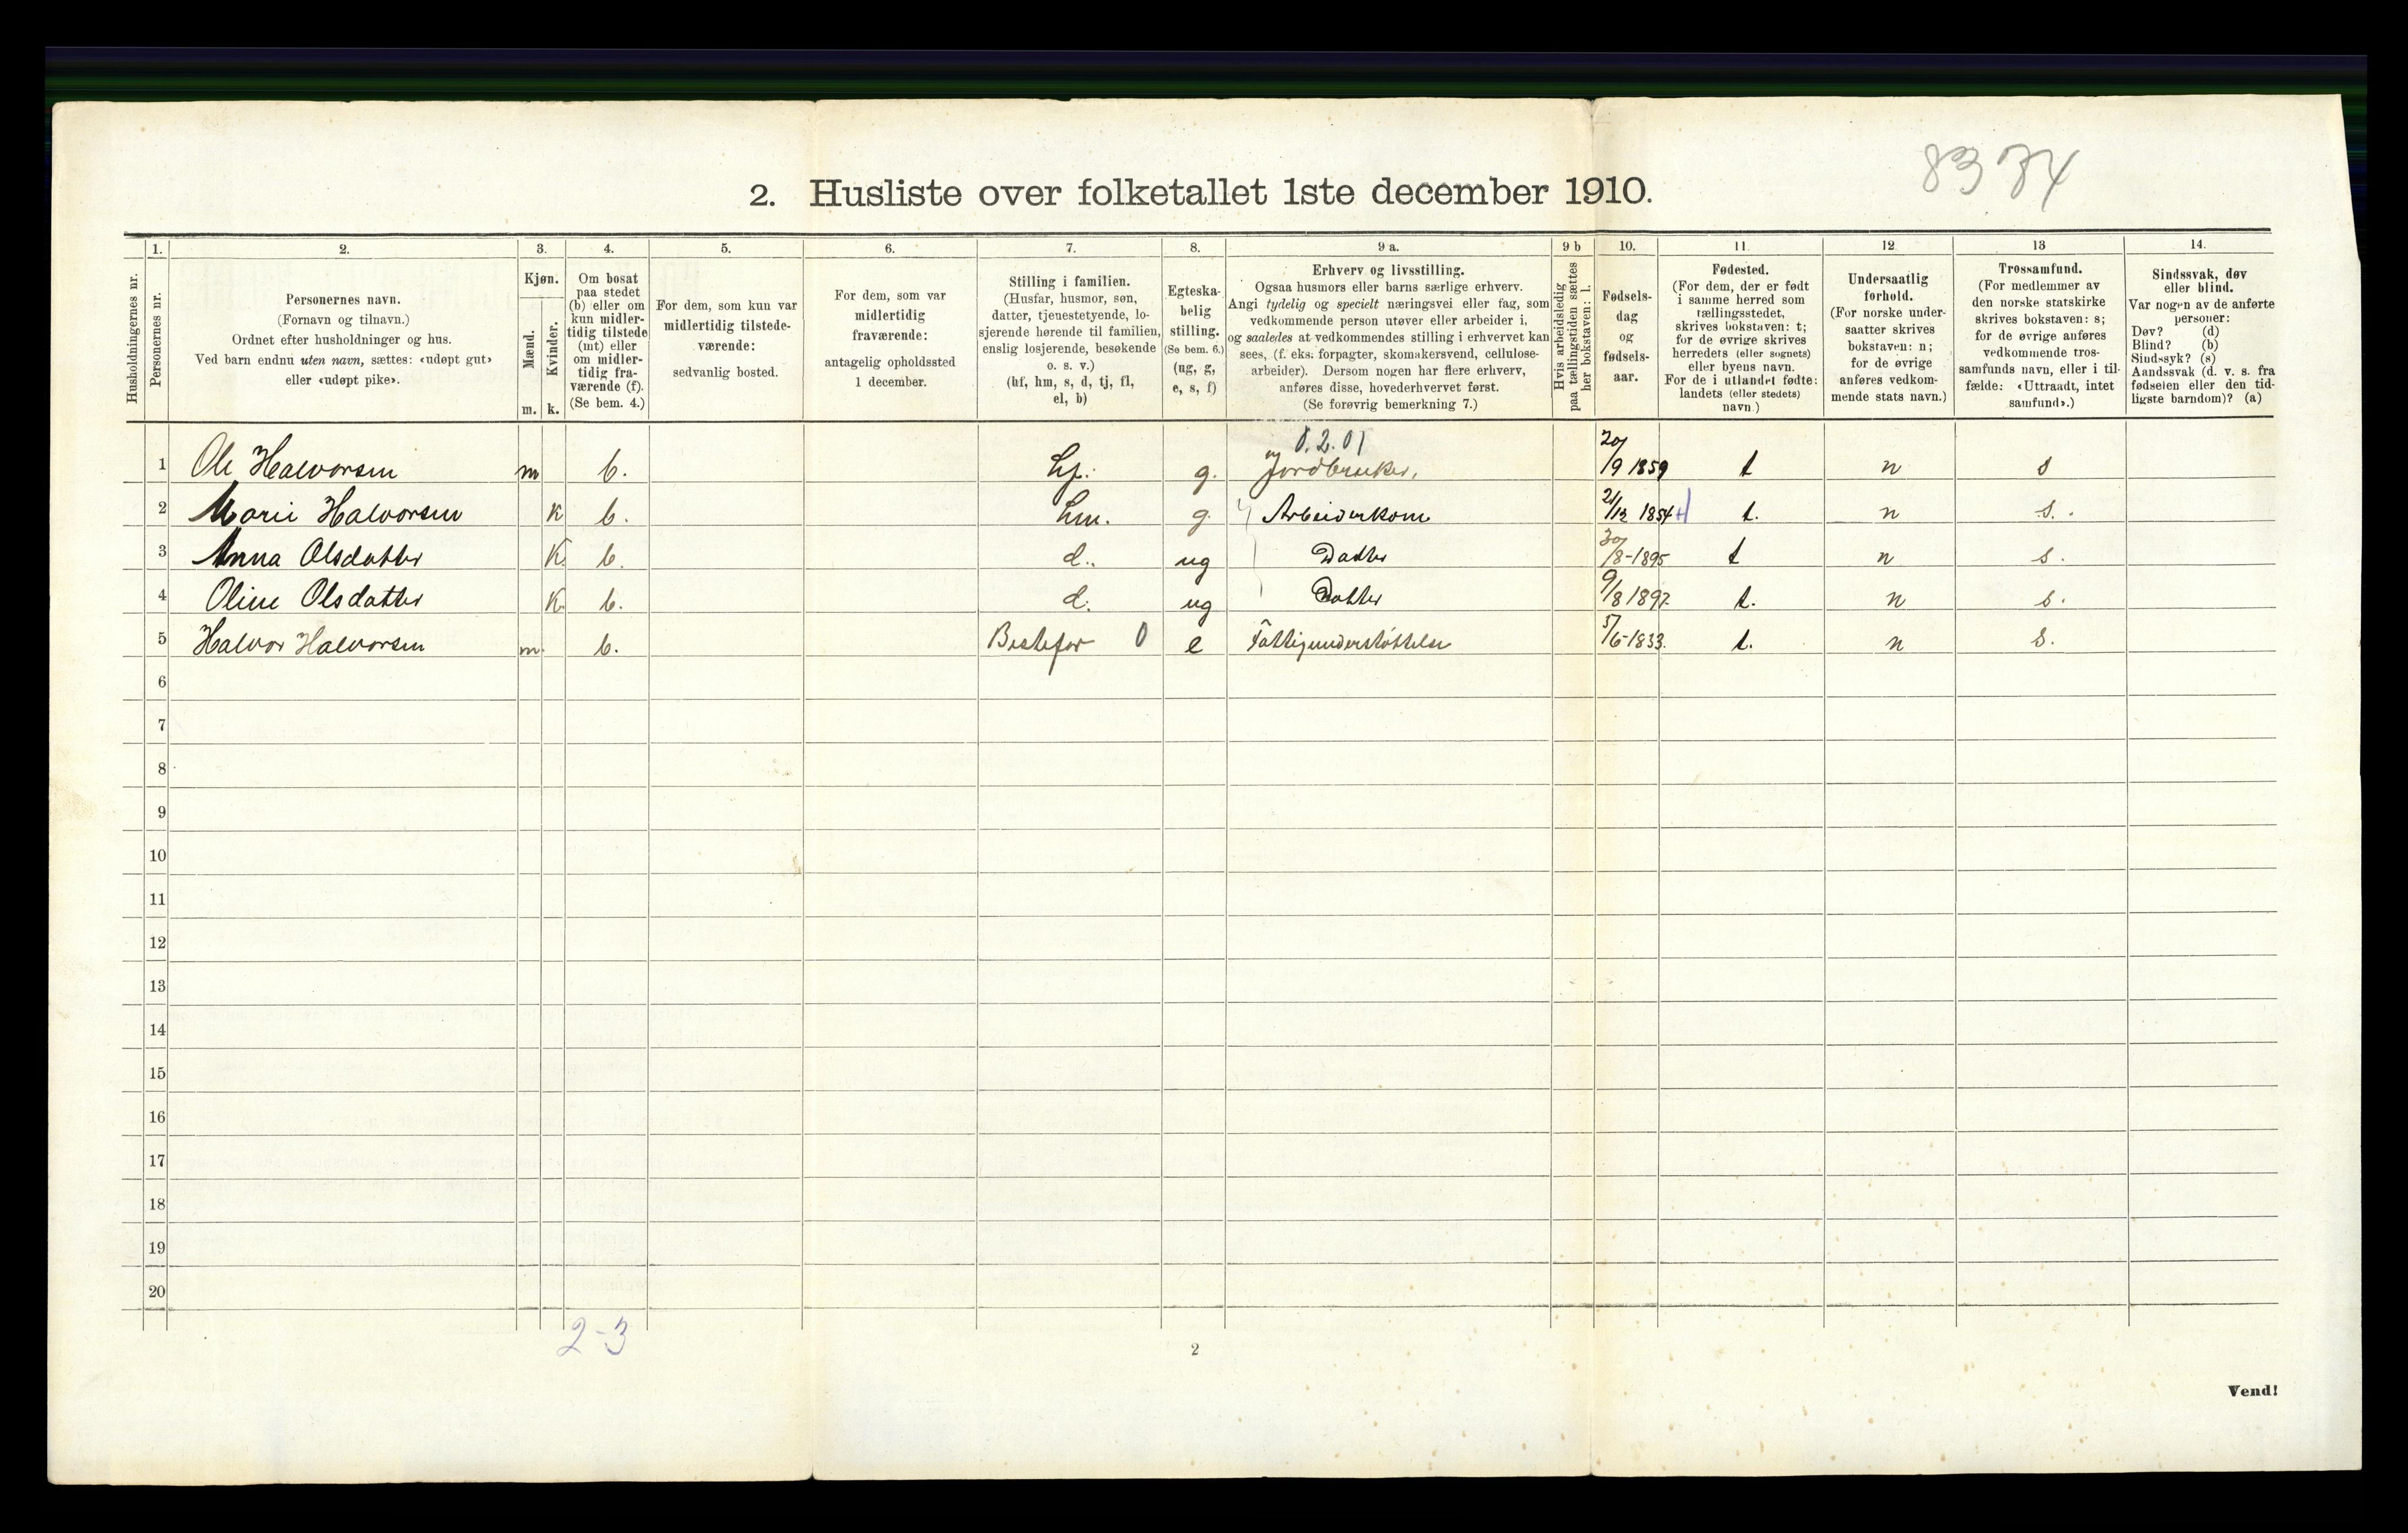 8374
2. Husliste over folketallet 1ste december 1910.
Husholdningernes nr.
1.
Personernes nr.
2.
Personernes navn.
(Fornavn og tilnavn.)
Ordnet efter husholdninger og hus.
Ved barn endnu uten navn, sættes: «udøpt gut»
eller «udøpt pike».
3.
Kjøn.
Mænd.
m.
Kvinder.
k.
4.
Om bosat
paa stedet
(b) eller om
kun midler-
tidig tilstede
(mt) eller
om midler-
tidig fra-
værende (f).
(Se bem. 4.)
5.
For dem, som kun var
midlertidig tilstede-
værende:
sedvanlig bosted.
6.
For dem, som var
midlertidig
fraværende:
antagelig opholdssted
1 december.
7.
Stilling i familien.
(Husfar, husmor, søn,
datter, tjenestetyende, lo-
sjerende hørende til familien,
enslig losjerende, besøkende
o. s. v.)
(hf, hm, s, d, tj, fl,
el, b)
8.
Egteska-
belig
stilling.
(Se bem. 6.)
(ug, g,
e, s, f)
9 a.
Erhverv og livsstilling.
Ogsaa husmors eller barns særlige erhverv.
Angi tydelig og specielt næringsvei eller fag, som
vedkommende person utøver eller arbeider i,
og saaledes at vedkommendes stilling i erhvervet kan
sees, (f. eks. forpagter, skomakersvend, cellulose-
arbeider). Dersom nogen har flere erhverv,
anføres disse, hovederhvervet først.
(Se forøvrig bemerkning 7.)
9 b
Hvis arbeidsledig
paa tællingstiden sættes
her bokstaven: l.
10.
Fødsels-
dag
og
fødsels-
aar.
11.
Fødested.
(For dem, der er født
i samme herred som
tællingsstedet,
skrives bokstaven: t;
for de øvrige skrives
herredets (eller sognets)
eller byens navn.
For de i utlandet fødte:
landets (eller stedets)
navn.)
12
Undersaatlig
forhold.
(For norske under-
saatter skrives
bokstaven: n;
for de øvrige
anføres vedkom-
mende stats navn.)
13
Trossamfund.
(For medlemmer av
den norske statskirke
skrives bokstaven: s;
for de øvrige anføres
vedkommende tros-
samfunds navn, eller i til-
fælde: «Uttraadt, intet
samfund».)
14.
Sindssvak, døv
eller blind.
Var nogen av de anførte
personer:
Døv? (d)
Blind? (b)
Sindssyk? (s)
Aandssvak (d. v. s. fra
fødselen eller den tid-
ligste barndom)? (a)
0.2.01
1 Ole Halvorsen m b. hf. g. Jordbruker, 20/9 1859 t n s
2 Marie Halvorsen k b. hm. g. Arbeiderkone 21/12 1854 t. n s.
3 Anna Olsdatter K. b. d. ug Datter 30/8-1895 t n s.
4 Oline Olsdatter K. b. d. ug Datter 9/8 1897. t. n s.
5 Halvor Halvorsen m. b. Bestefar 0 e Fattigunderstøttelse 5/6-1833. t. n s.
6
7
8
9
10
11
12
13
14
15
16
17
18
19
20
2-3
2
Vend!